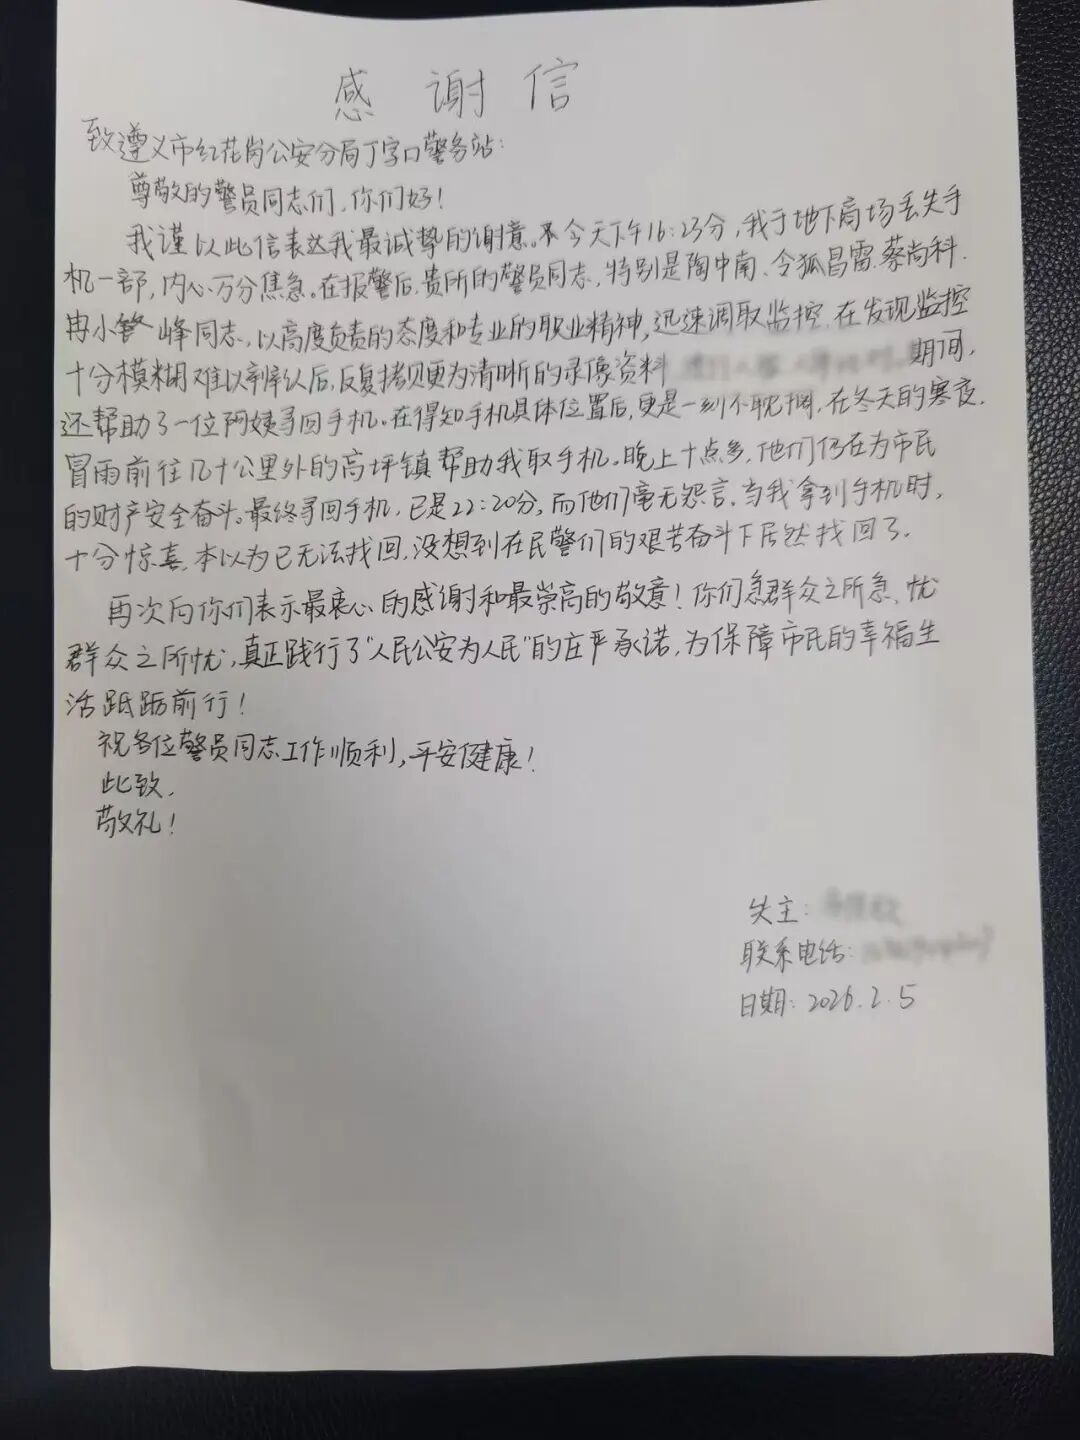 感谢信
致遵义市红花岗公安分局丁字口警务站:
尊敬的警员同志们,你们好!
我谨以此信表达我最诚挚的谢意。今天下午16:23分,我于地下商场丢失手
机一部,内心万分焦急。在报警后,贵所的警员同志,特别是陶中南、令狐昌雷、蔡尚科、
冉小峰同志,以高度负责的态度和专业的职业精神,迅速调取监控,在发现监控
十分模糊难以辨认后,反复拷贝更为清晰的录像资料 期间,
还帮助了一位阿姨寻回手机。在得知手机具体位置后,更是一刻不耽搁,在冬天的寒夜,
冒雨前往几十公里外的高坪镇帮助我取手机。晚上十点多,他们仍在为市民
的财产安全奋斗。最终寻回手机,已是22:20分,而他们毫无怨言,当我拿到手机时,
十分惊喜,本以为已无法找回,没想到在民警们的艰苦奋斗下居然找回了。
再次向你们表示最衷心的感谢和最崇高的敬意!你们急群众之所急,忧
群众之所忧,真正践行了"人民公安为人民"的庄严承诺,为保障市民的幸福生
活砥砺前行!
祝各位警员同志工作顺利,平安健康!
此致,
敬礼!
失主:
联系电话:
日期:2026.2.5